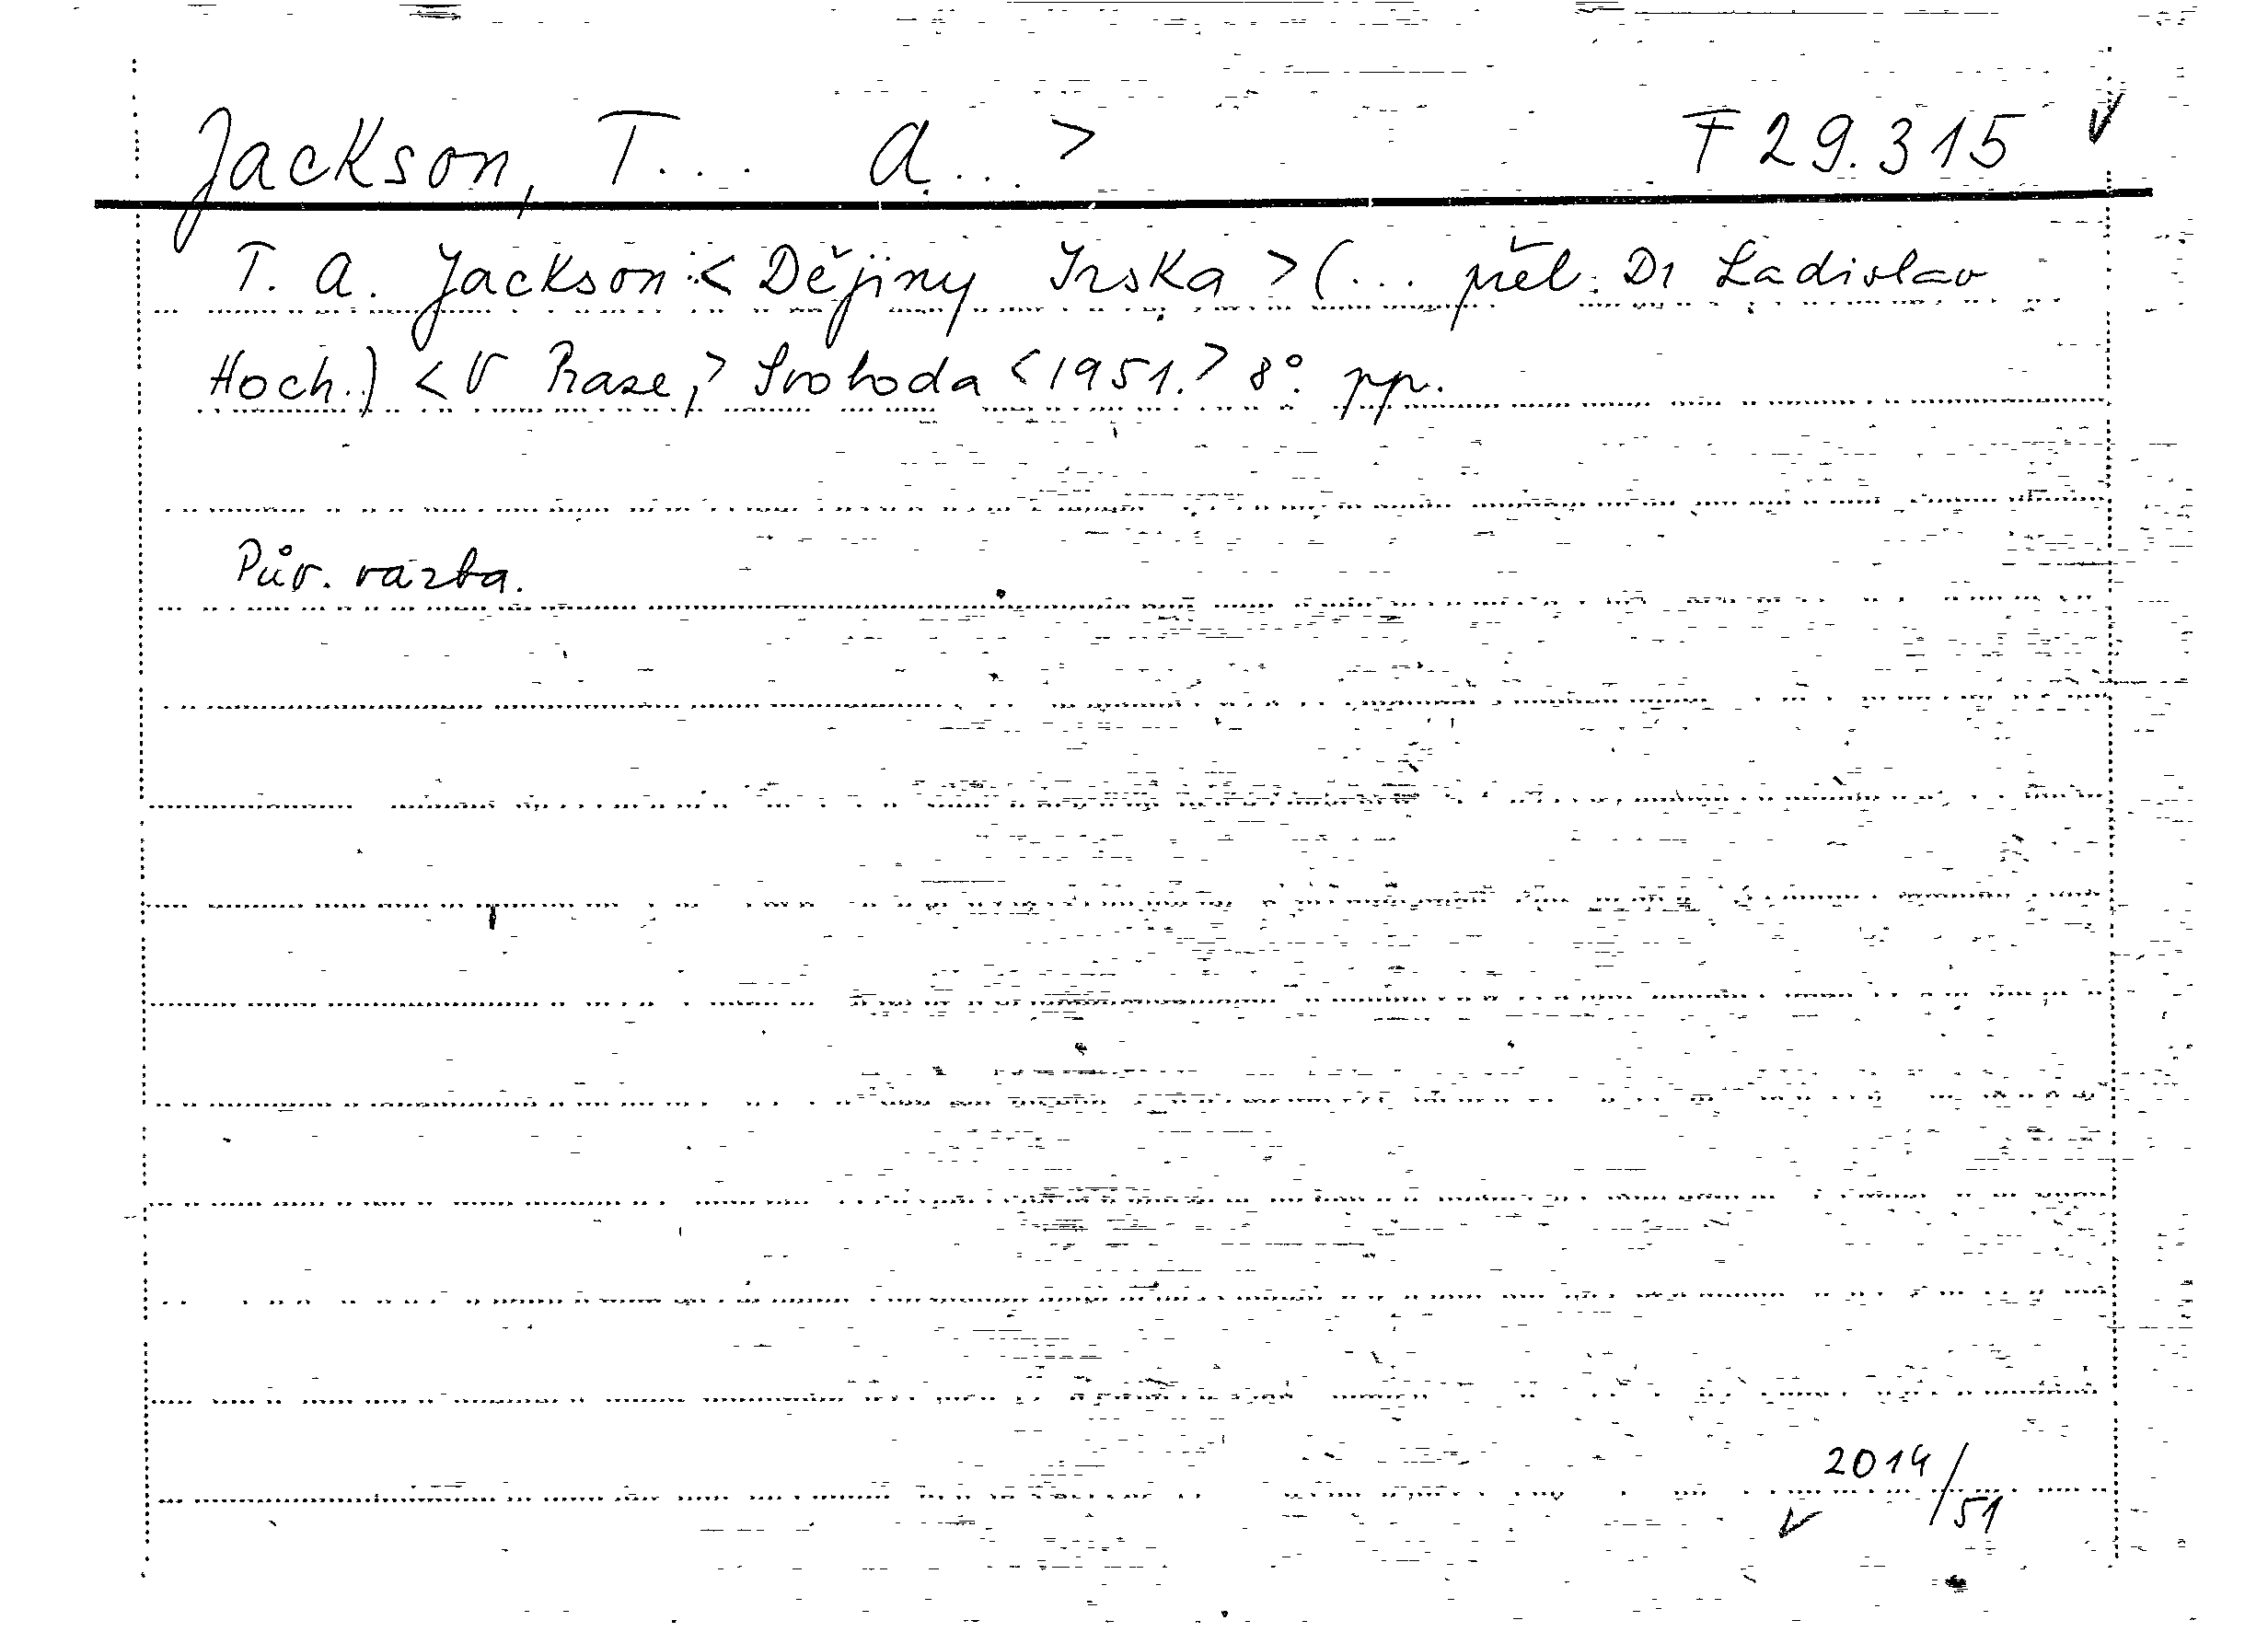 Jackson, T... A...> F 29.315
T. A. Jackson: < Dějiny Irska > (... přel. Dr Ladislav
Hoch.) < V Praze, > Svoboda < 1951. > 8°. pp.
Pův. vazba.
2014/51